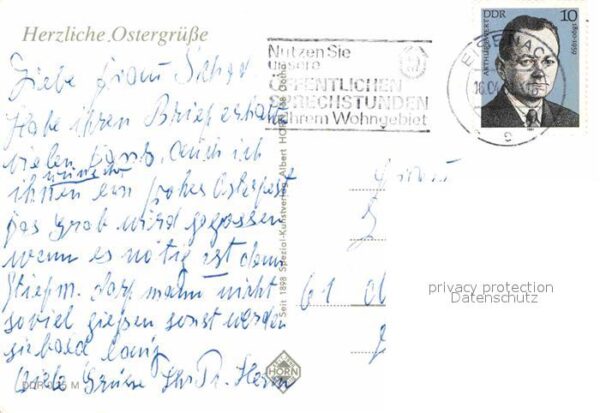 Herzliche Ostergrüße
Liebe Frau
Habe ihren Brief erhalten
vielen Dank. Auch ich
wünsche
ihnen ein frohes Osterfest
das Grab wird gegossen
wenn es nötig ist denn
Stiefm. darf mann nicht
soviel gießen sonst werden
sie bald
Viele Grüsse Ihr Fr. Horn
DDR 0,25 M
Seit 1898 Spezial-Kunstverlag Albert HORN, DDR Gotha
HORN
Nutzen Sie
unsere
ÖFFENTLICHEN
SPRECHSTUNDEN
in Ihrem Wohngebiet
EISENACH
DDR
10
ARTHUR
Frau
61 
privacy protection
Datenschutz